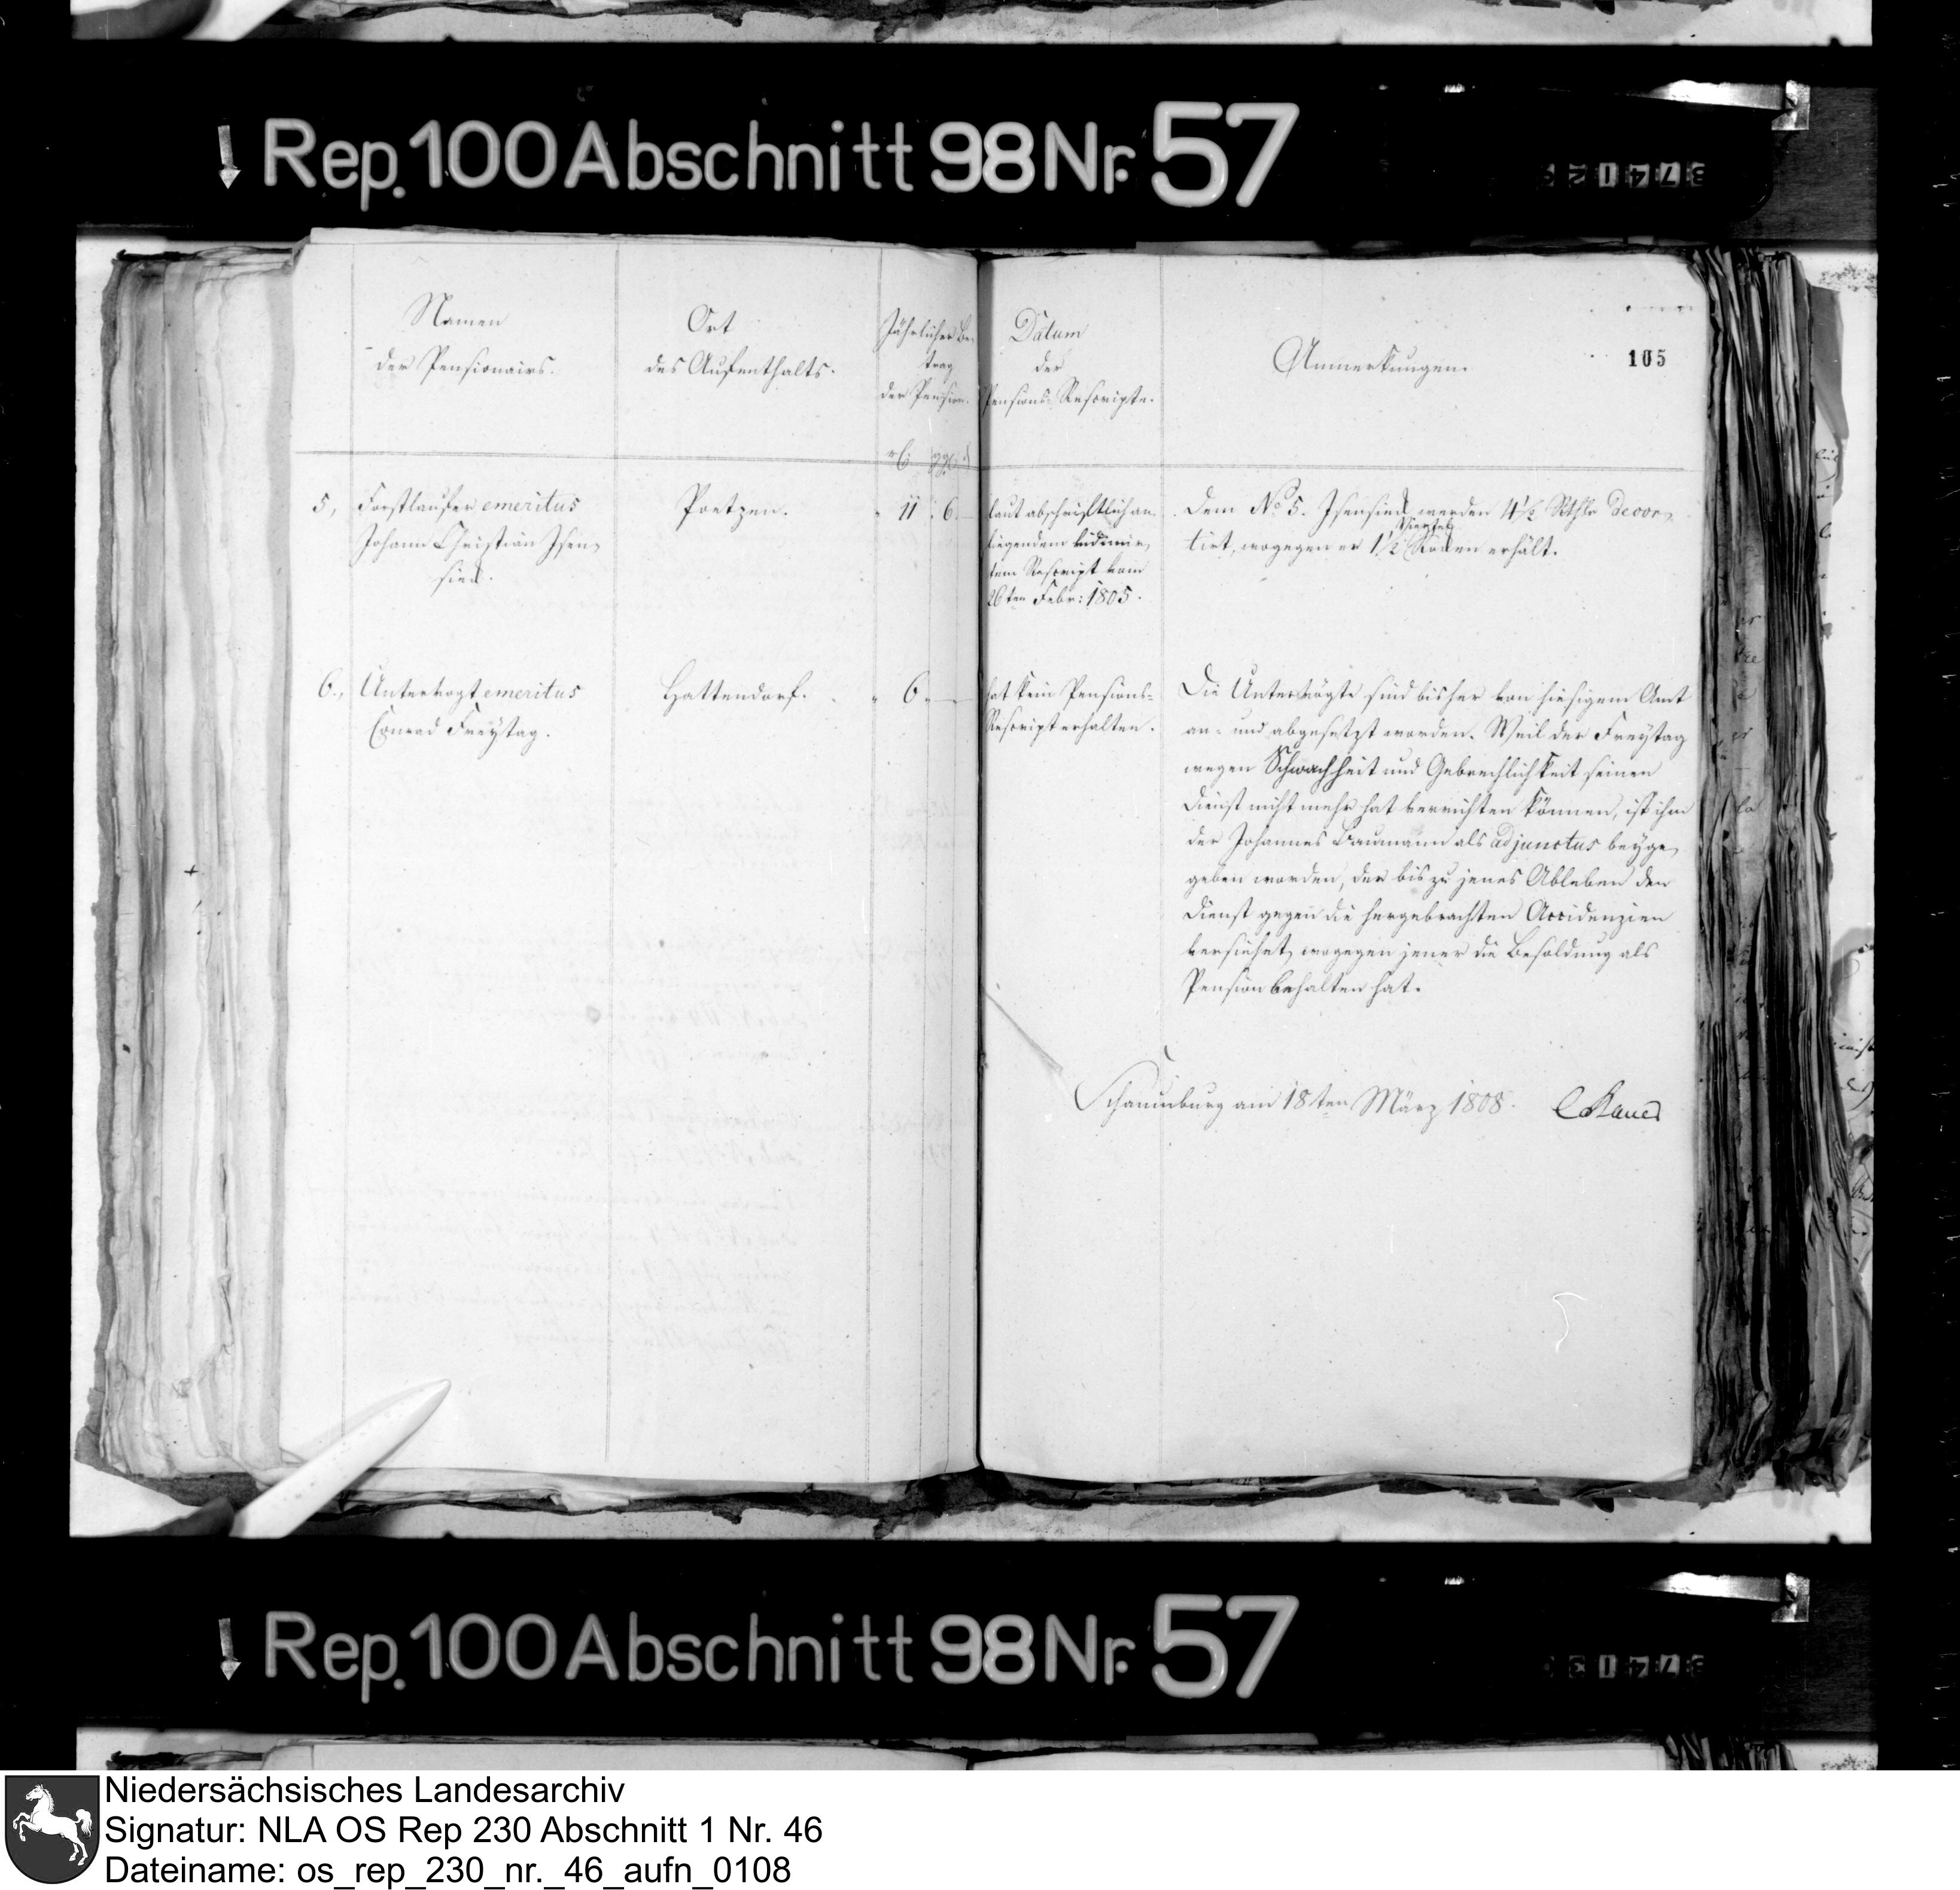 Rep. 100 Abschnitt 98 Nr. 57
Namen
der Pensionairs.
Ort
des Aufenthalts.
Jährlicher Be-
trag
der Pension.
rt. ggl.
Datum
der
Pensions-Rescripte.
Anmerkungen.
105
5, Forstlaufer emeritus
Johann Christian Isen-
sied.
Poetzen.
11 6
laut abschriftlich an-
liegendem vidimir-
tem Rescript vom
26ten Febr: 1805.
Dem No 5. Isensied werden 4 1/2 Rthlr decor-
tirt, wogegen er 1 1/2 Viertel Rocken erhält.
6., Untervogt emeritus
Conrad Freytag.
Hattendorf.
6
hat kein Pensions-
Rescript erhalten.
Die Untervögte sind bisher von hiesigem Amt
an- und abgesetzt worden. Weil der Freytag
wegen Schwachheit und Gebrechlichkeit seinen
Dienst nicht mehr hat verrichten können, ist ihm
der Johannes Baumann als adjunctus beyge-
geben worden, der bis zu jenes Ableben den
Dienst gegen die hergebrachten Accidenzien
versiehet, wogegen jener die Besoldung als
Pension behalten hat.
Schaumburg am 18ten März 1808.
Rep. 100 Abschnitt 98 Nr. 57
Niedersächsisches Landesarchiv
Signatur: NLA OS Rep 230 Abschnitt 1 Nr. 46
Dateiname: os_rep_230_nr._46_aufn_0108